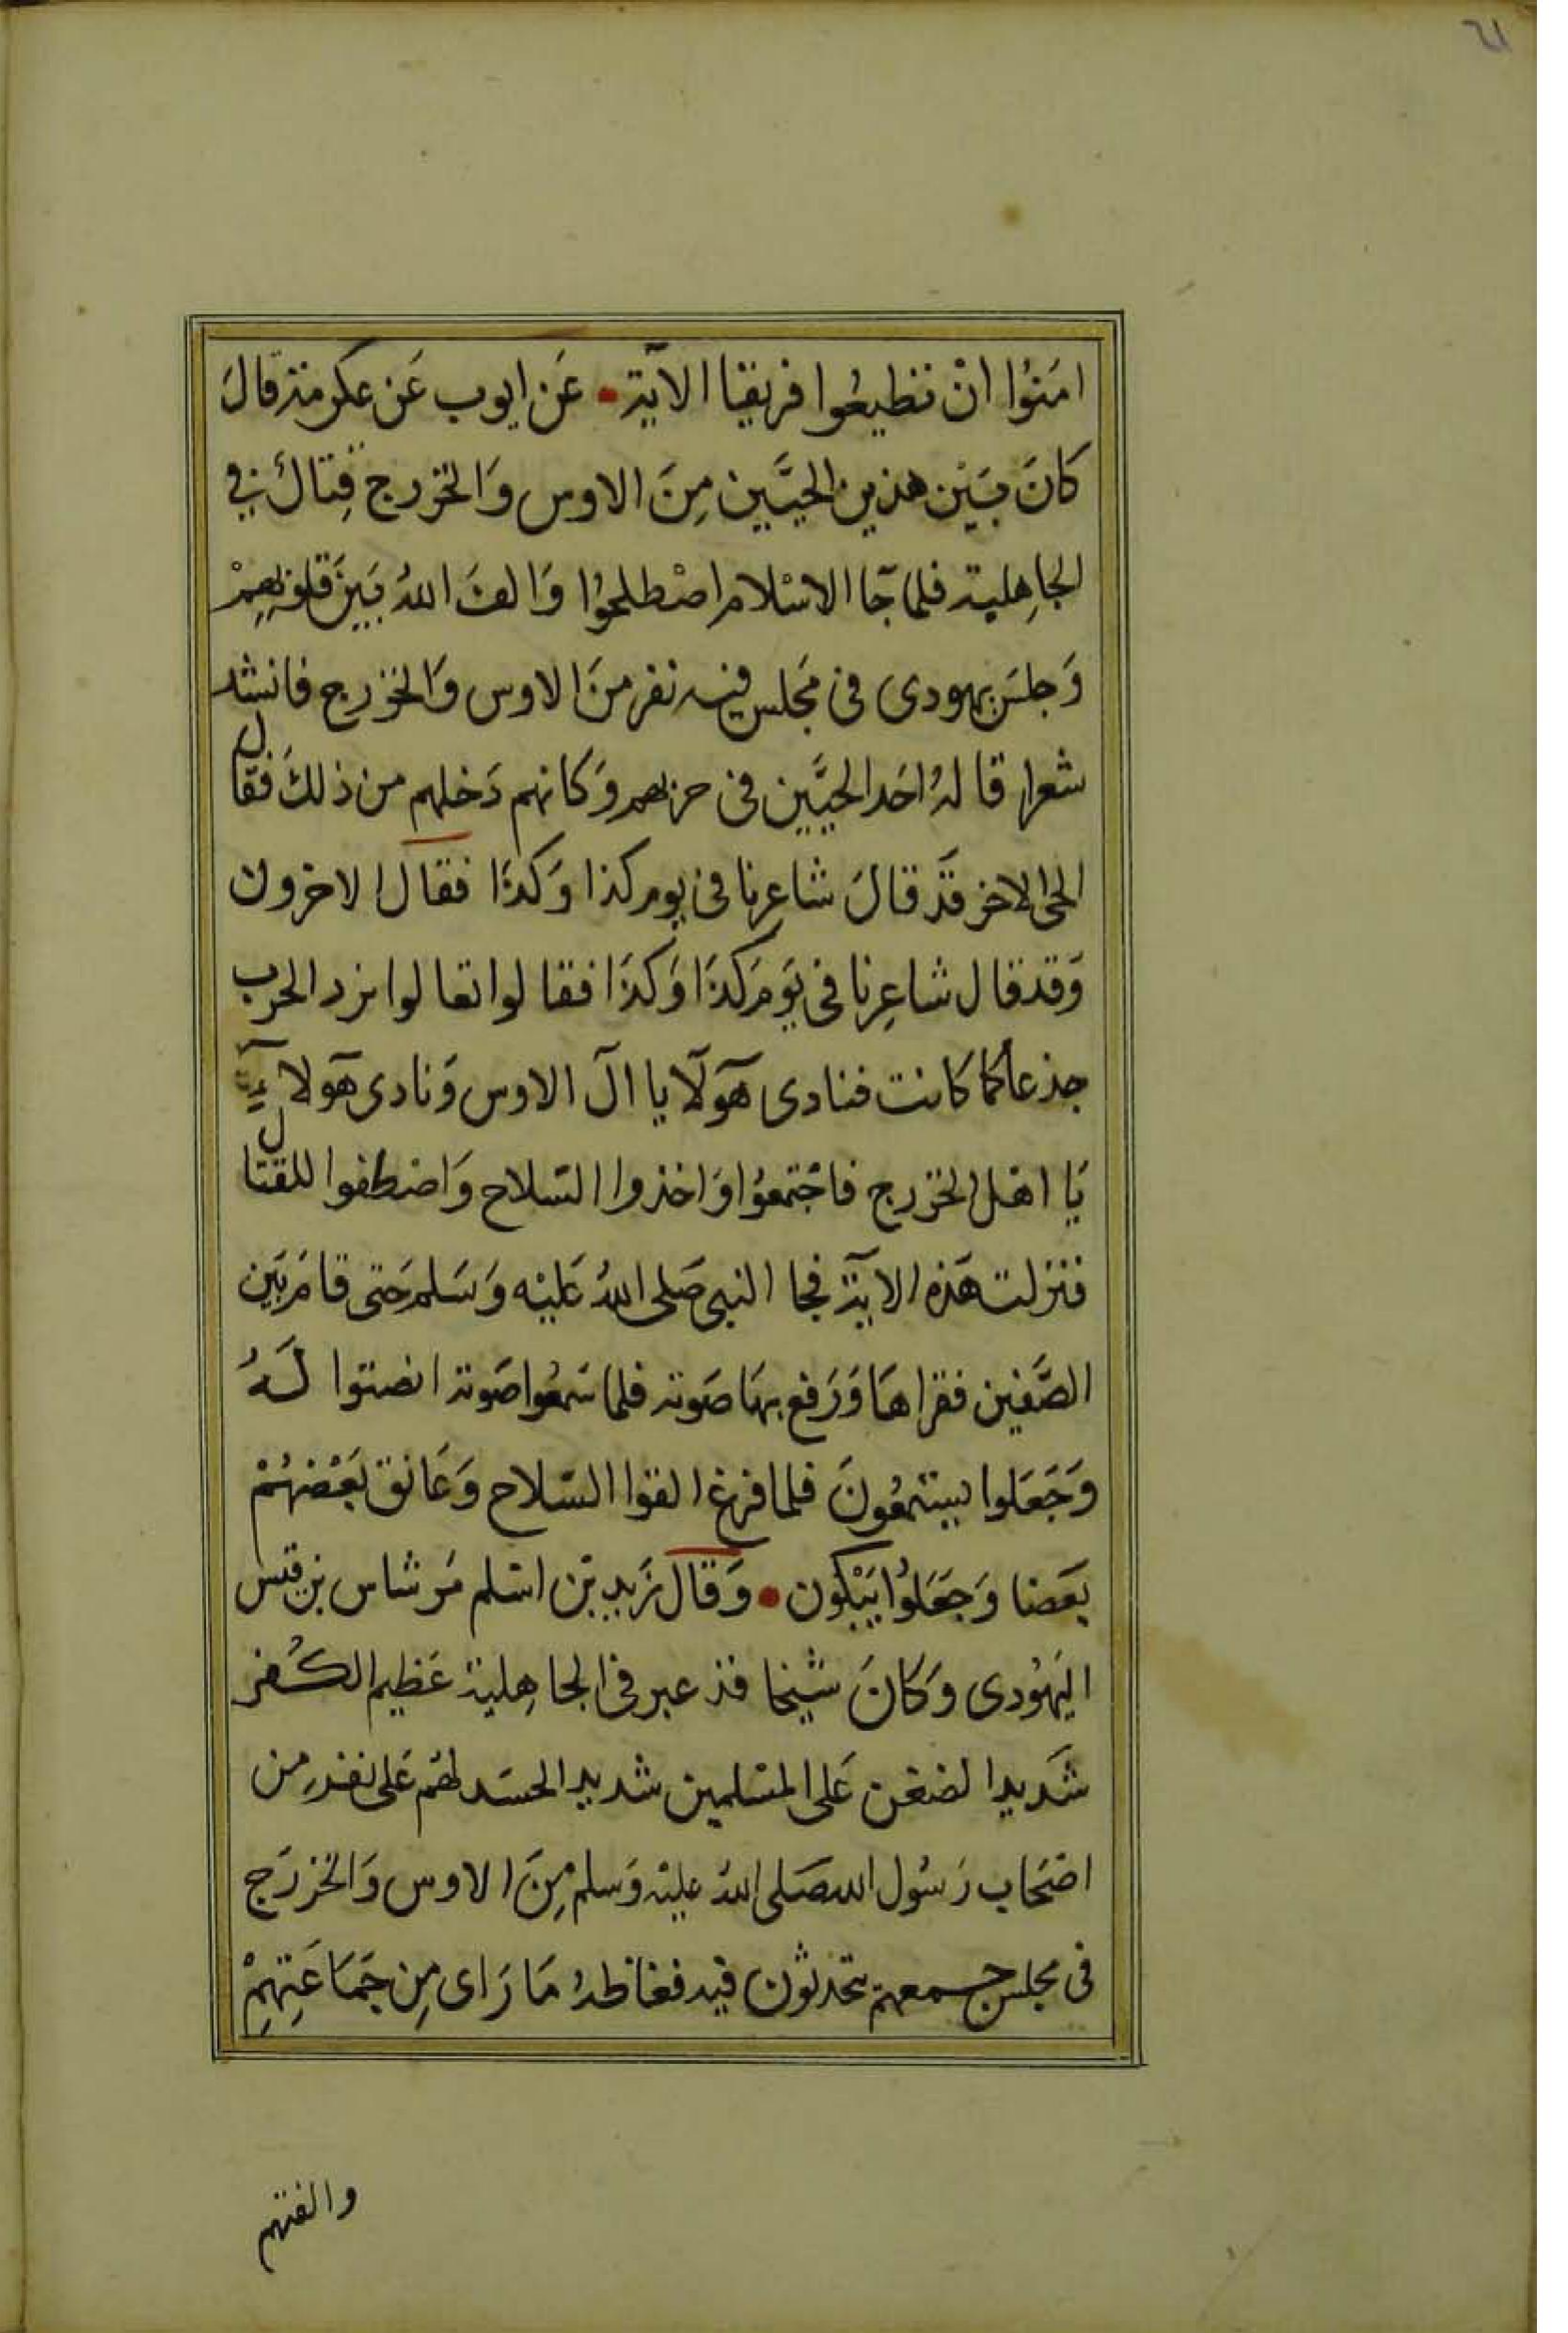 ٦١
امَنُوا انْ تطيعُوا فريقا الآية • عَن ايوب عَن عكرمة قالَ
كانَ بَيْن هذين الحيَّين مِنَ الاوس وَالخزرج قِتالٌ في
الجاهِلية فلما جَآ الاسْلام اصْطلحوُا وَالفَ اللهُ بَيْنَ قلوبهِمْ
وَجلسَ يهودى فى مَجلس فيه نفر منَ الاوس وَالخزرج فانشد
شعرا قالهُ احَد الحيَّين فى حربهم وَكانهم دَخلهم من ذلكَ فقال
الحى الاخر قَد قالَ شاعرنا فى يوم كذا وَكذَا فقال الاخرون
وَقد قال شاعِرنا فى يَوم كذَا وَكذَا فقالوا تعالوا نرد الحرب
جذعا كما كانت فنادى هَولآ يا الَ الاوس وَنادى هَولاءِ
يَا اهْل الخزرج فاجْتمعوُا وَاخذوا السّلاح وَاصْطفوا للقتال
فنزلت هَذه الاية فجا النبى صَلى اللهُ عَليْه وَسَلم حَتى قامَ بَين
الصَّفين فقراهَا وَرَفع بهَا صَوته فلما سَمعُوا صَوته انصتوا لَهُ
وَجَعَلوا يستمعُونَ فلما فرغ القوا السّلاح وَعَانق بَعْضهُمْ
بَعضا وَجَعَلوُا يَبْكون • وَقال زَيد بْن اسْلم مَر شاس بن قيس
اليَهُودى وَكانَ شيْخا قد عبر فى الجاهِلية عَظيم الكُفر
شَديد الضغن عَلى المسْلمين شديد الحسَد لهُم عَلى نفر مِن
اصْحَاب رَسُول الله صَلى اللهُ عليْه وَسلم مِنَ الاوس وَالخزرَج
فى مجلس جمعهمْ يتحدثون فيه فغاظهُ مَا رَاى مِن جَمَاعَتِهِمْ
والفتهم